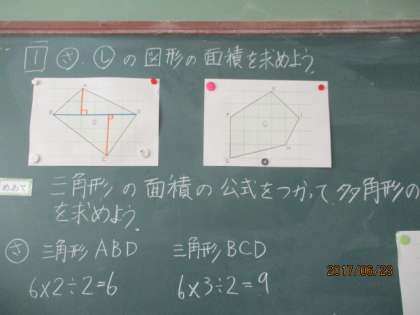 1 さ, し の図形の面積を求めよう。
めあて 三角形の面積の公式をつかって, 多角形の
を求めよう。
さ 三角形ABD 三角形BCD
6×2÷2=6 6×3÷2=9
2017/06/23